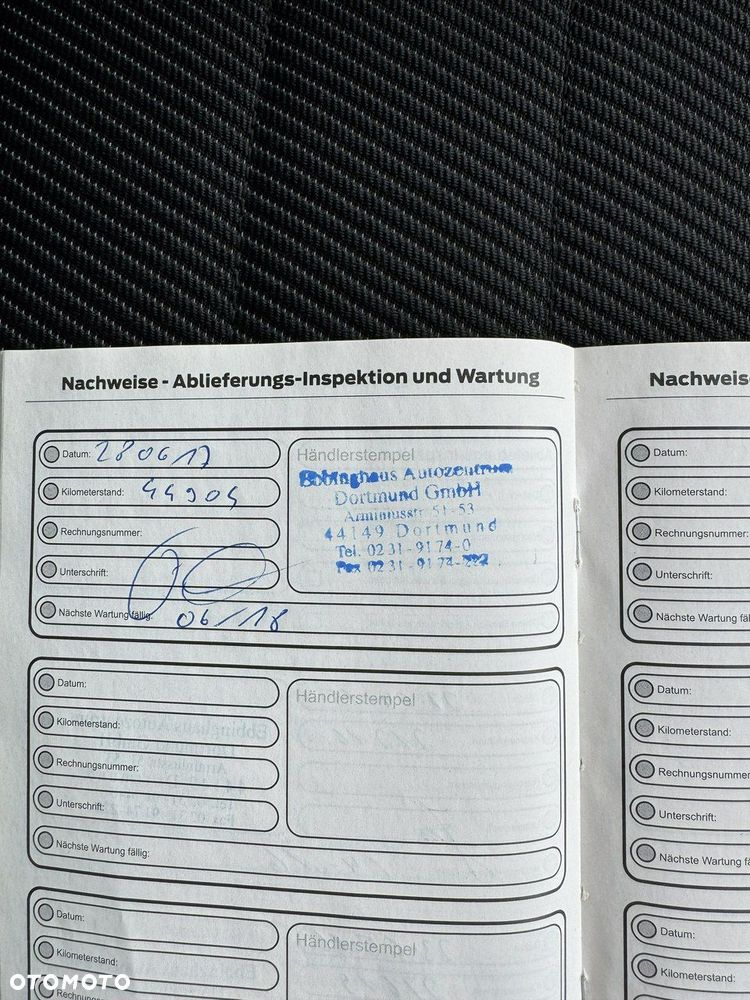 Nachweise - Ablieferungs-Inspektion und Wartung
Datum: 280617
Kilometerstand: 44904
Rechnungsnummer:
Unterschrift:
Nächste Wartung fällig: 06/18
Händlerstempel
Ebbinghaus Autozentrum
Dortmund GmbH
Arminiusstr. 51-53
44149 Dortmund
Tel. 02 31 - 91 74-0
Fax 02 31 - 91 74-222
Datum:
Kilometerstand:
Rechnungsnummer:
Unterschrift:
Nächste Wartung fällig:
Händlerstempel
Datum:
Kilometerstand:
Rechnungsnummer:
Händlerstempel
Nachweis
Datum:
Kilometerstand:
Rechnungsnummer:
Unterschrift:
Nächste Wartung fäl
Datum:
Kilometerstand:
Rechnungsnummer
Unterschrift:
Nächste Wartung fä
Datum:
Kilometerstand:
OTOMOTO